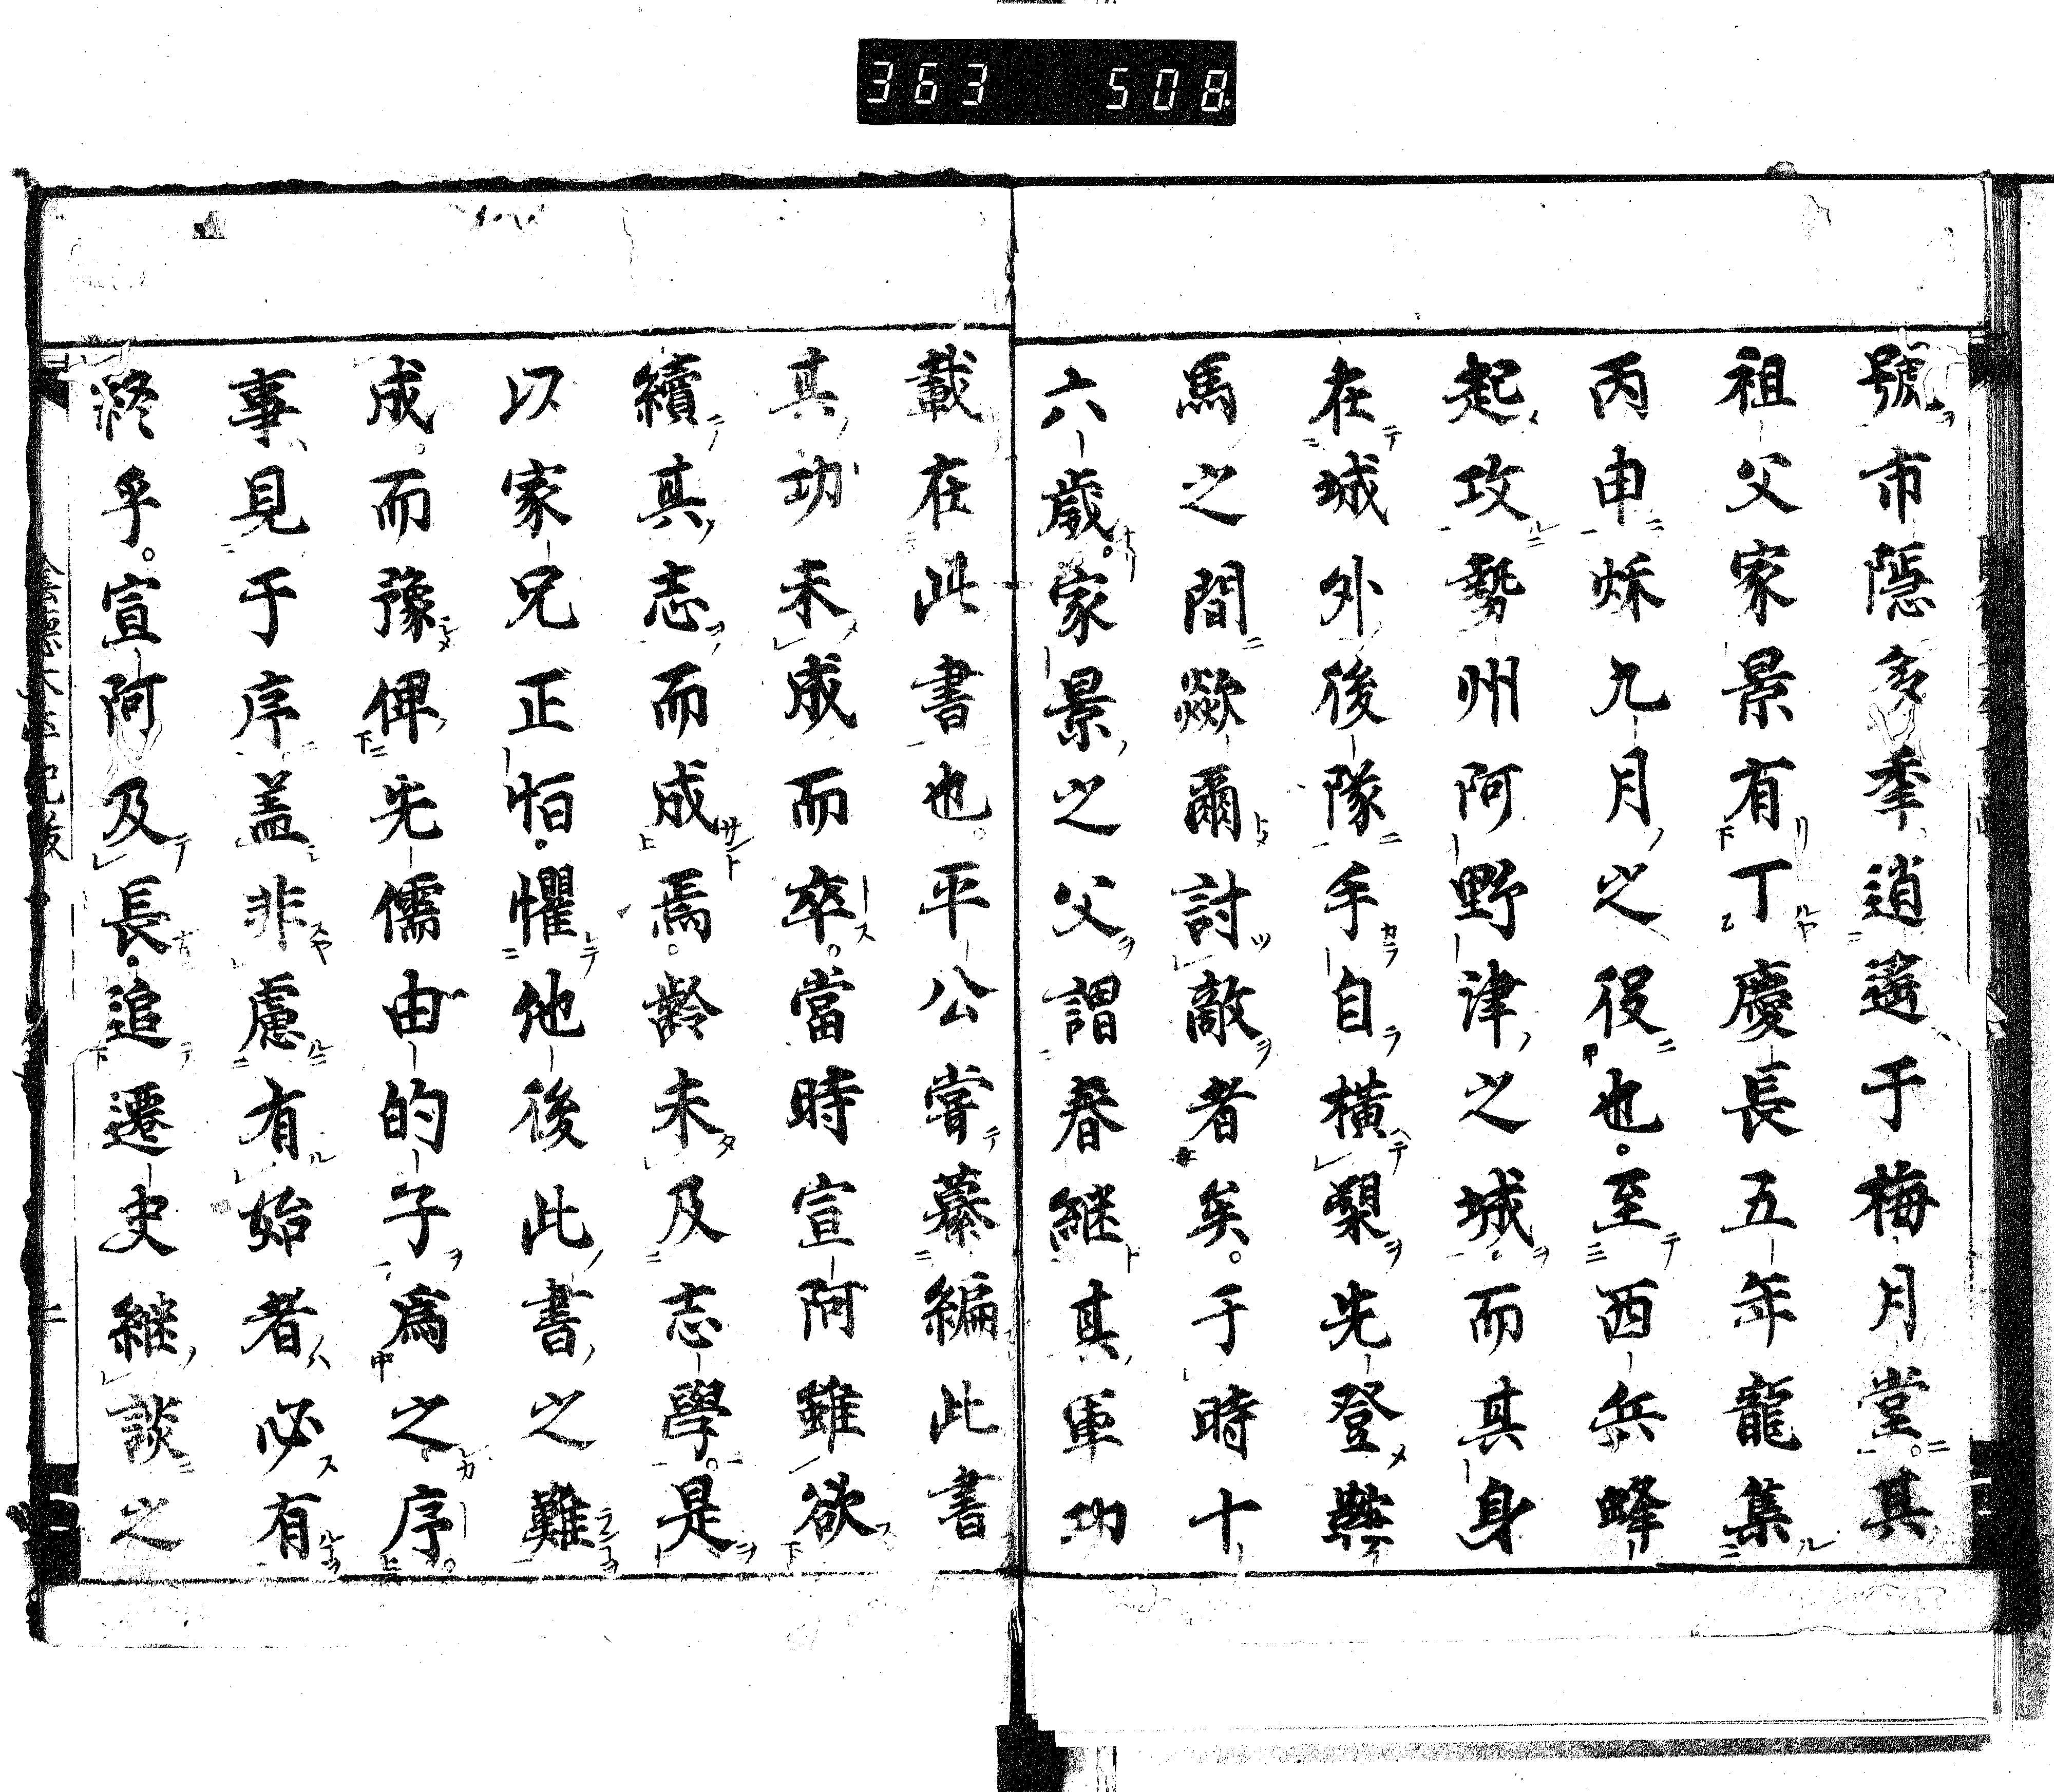 363 508
號市隱多季逍遙于梅月堂。其
祖父家景有丁慶長五年龍集
丙申秌九月之役也。至西兵蜂
起攻勢州阿野津之城。而其身
在城外後隊手自橫槊先登鞍
馬之間歘爾討敵者矣。于時十
六歲。家景之父謂春継其軍功
載在此書也。平公嘗纂編此書
其功未成而卒。當時宣阿雖欲
續其志而成焉。齡未及志學。是
以家兄正怕。懼他後此書之難
成。而豫俾先儒由的子為之序。
事見于序盖非慮有始者必有
終乎。宣阿及長。追遷史継談之